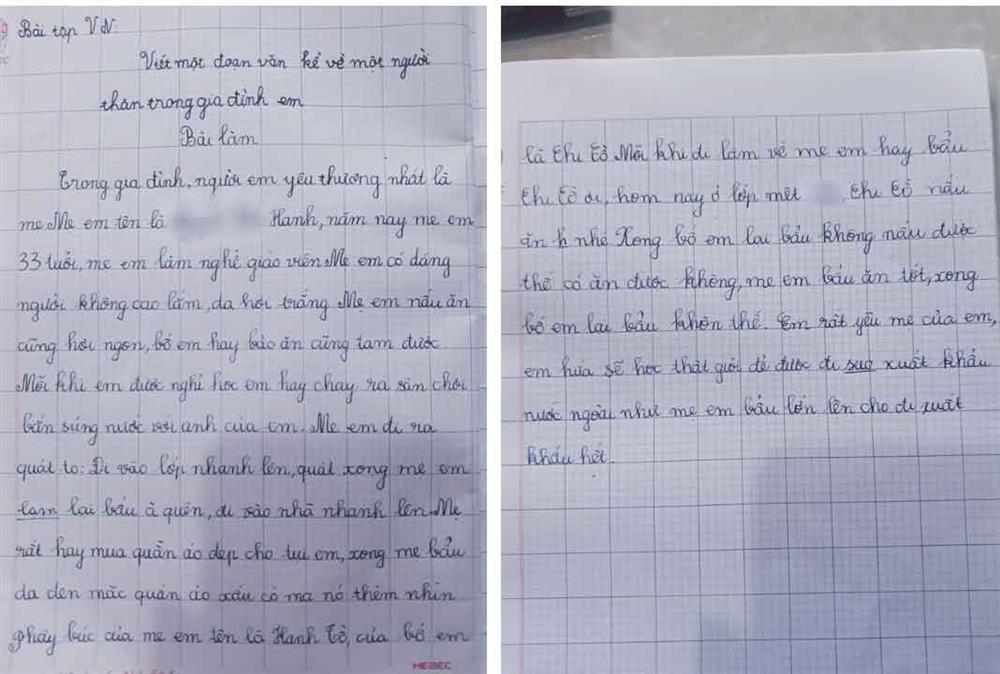 Bài tập VN.
Viết một đoạn văn kể về một người
thân trong gia đình em
Bài làm
Trong gia đình, người em yêu thương nhất là
mẹ. Mẹ em tên là Hanh, năm nay mẹ em
33 tuổi, mẹ em làm nghề giáo viên Mẹ em có dáng
người không cao lắm, da hơi trắng Mẹ em nấu ăn
cũng hơi ngon, bố em hay bảo ăn cũng tạm được
Mỗi khi em được nghỉ học em hay chạy ra sân chơi
bắn súng nước với anh của em. Mẹ em đi ra
quát to: Đi vào lớp nhanh lên, quát xong mẹ em
lạm lại bẩu à quên, đi vào nhà nhanh lên. Mẹ
rất hay mua quần áo đẹp cho tụi em, xong mẹ bẩu
da đen mặc quần áo xấu có ma nó thèm nhìn
phây búc của mẹ em tên là Hanh Tồ, của bố em
là Thu Tồ Mỗi khi đi làm về mẹ em hay bẩu
Thu Tồ ơi, hôm nay ở lớp mệt Thu Tồ nấu
ăn h nhé Xong bố em lại bẩu không nấu được
thế có ăn được không, mẹ em bẩu ăn tốt, xong
bố em lại bẩu khôn thế. Em rất yêu mẹ của em,
em húa sẽ học thật giỏi để được đi sug xuất khẩu
nước ngoài như mẹ em bẩu lớn lên cho đi xuất
khẩu hết.
HEBEC